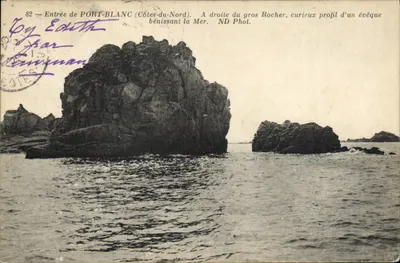 82 - Entrée de PORT-BLANC (Côtes-du-Nord). A droite du gros Rocher, curieux profil d'un évêque
bénissant la Mer. ND Phot.
Edith
par